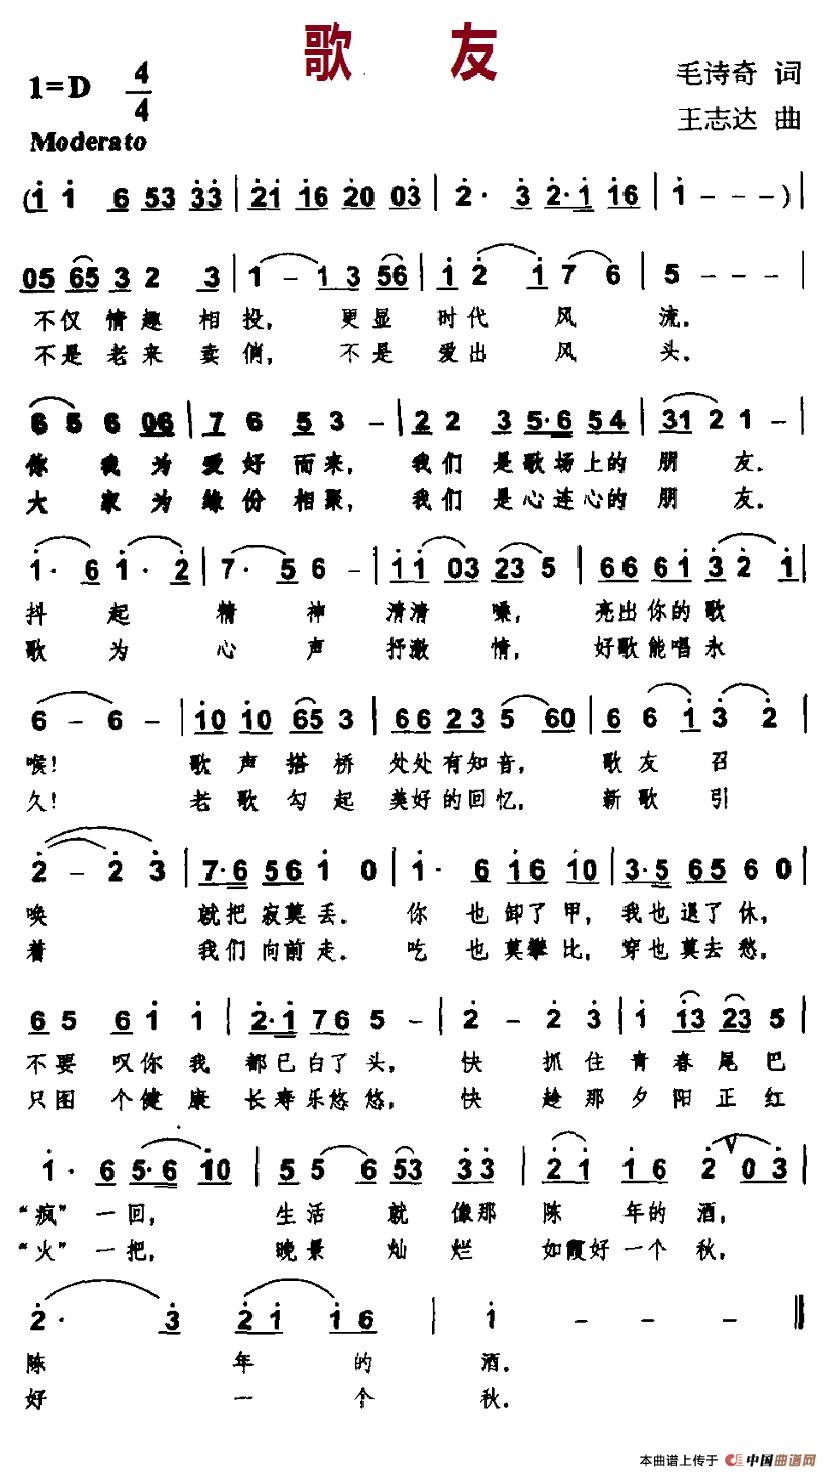 歌 友
1=D 4/4
毛诗奇 词
Moderato
王志达 曲
(1 1 6 53 33 | 21 16 20 03 | 2· 3 2·1 16 | 1 - - - ) |
05 65 3 2 3 | 1 - 1 3 56 | 1 2 1 7 6 | 5 - - - |
不仅 情趣 相投, 更显 时代 风 流.
不是 老来 卖俏, 不是 爱出 风 头.
6 5 6 06 | 7 6 5 3 - | 2 2 3 5·6 54 | 31 2 1 - |
你 我 为 爱好 而来, 我们 是歌场上的 朋 友.
大 家 为 缘份 相聚, 我们 是心连心的 朋 友.
1· 6 1· 2 | 7· 5 6 - | 11 03 23 5 | 66 61 3 2 1 |
抖 起 精 神 清清 嗓, 亮出你的歌
歌 为 心 声 抒激 情, 好歌能唱永
6 - 6 - | 10 10 65 3 | 66 23 5 60 | 6 6 1 3 2 |
喉! 歌声搭桥 处处有知音, 歌友召
久! 老歌勾起 美好的回忆, 新歌引
2 - 2 3 | 7·6 56 1 0 | 1· 6 16 10 | 3·5 65 6 0 |
唤 就把寂莫丢. 你 也卸了甲, 我也退了休,
着 我们向前走. 吃 也莫攀比, 穿也莫去愁,
6 5 6 1 1 | 2·1 76 5 - | 2 - 2 3 | 1 13 23 5 |
不要 叹你我 都已白了头, 快 抓住青春尾巴
只图 个健康 长寿乐悠悠, 快 趁那夕阳正红
1· 6 5·6 10 | 5 5 6 53 3 3 | 2 1 1 6 2 V 0 3 |
“疯” 一回, 生活 就 像那 陈 年的酒,
“火” 一把, 晚景 灿 烂 如霞好一个秋,
2· 3 | 2 1 1 6 | 1 - - - ‖
陈 年 的 酒.
好 一 个 秋.
本曲谱上传于 中国曲谱网